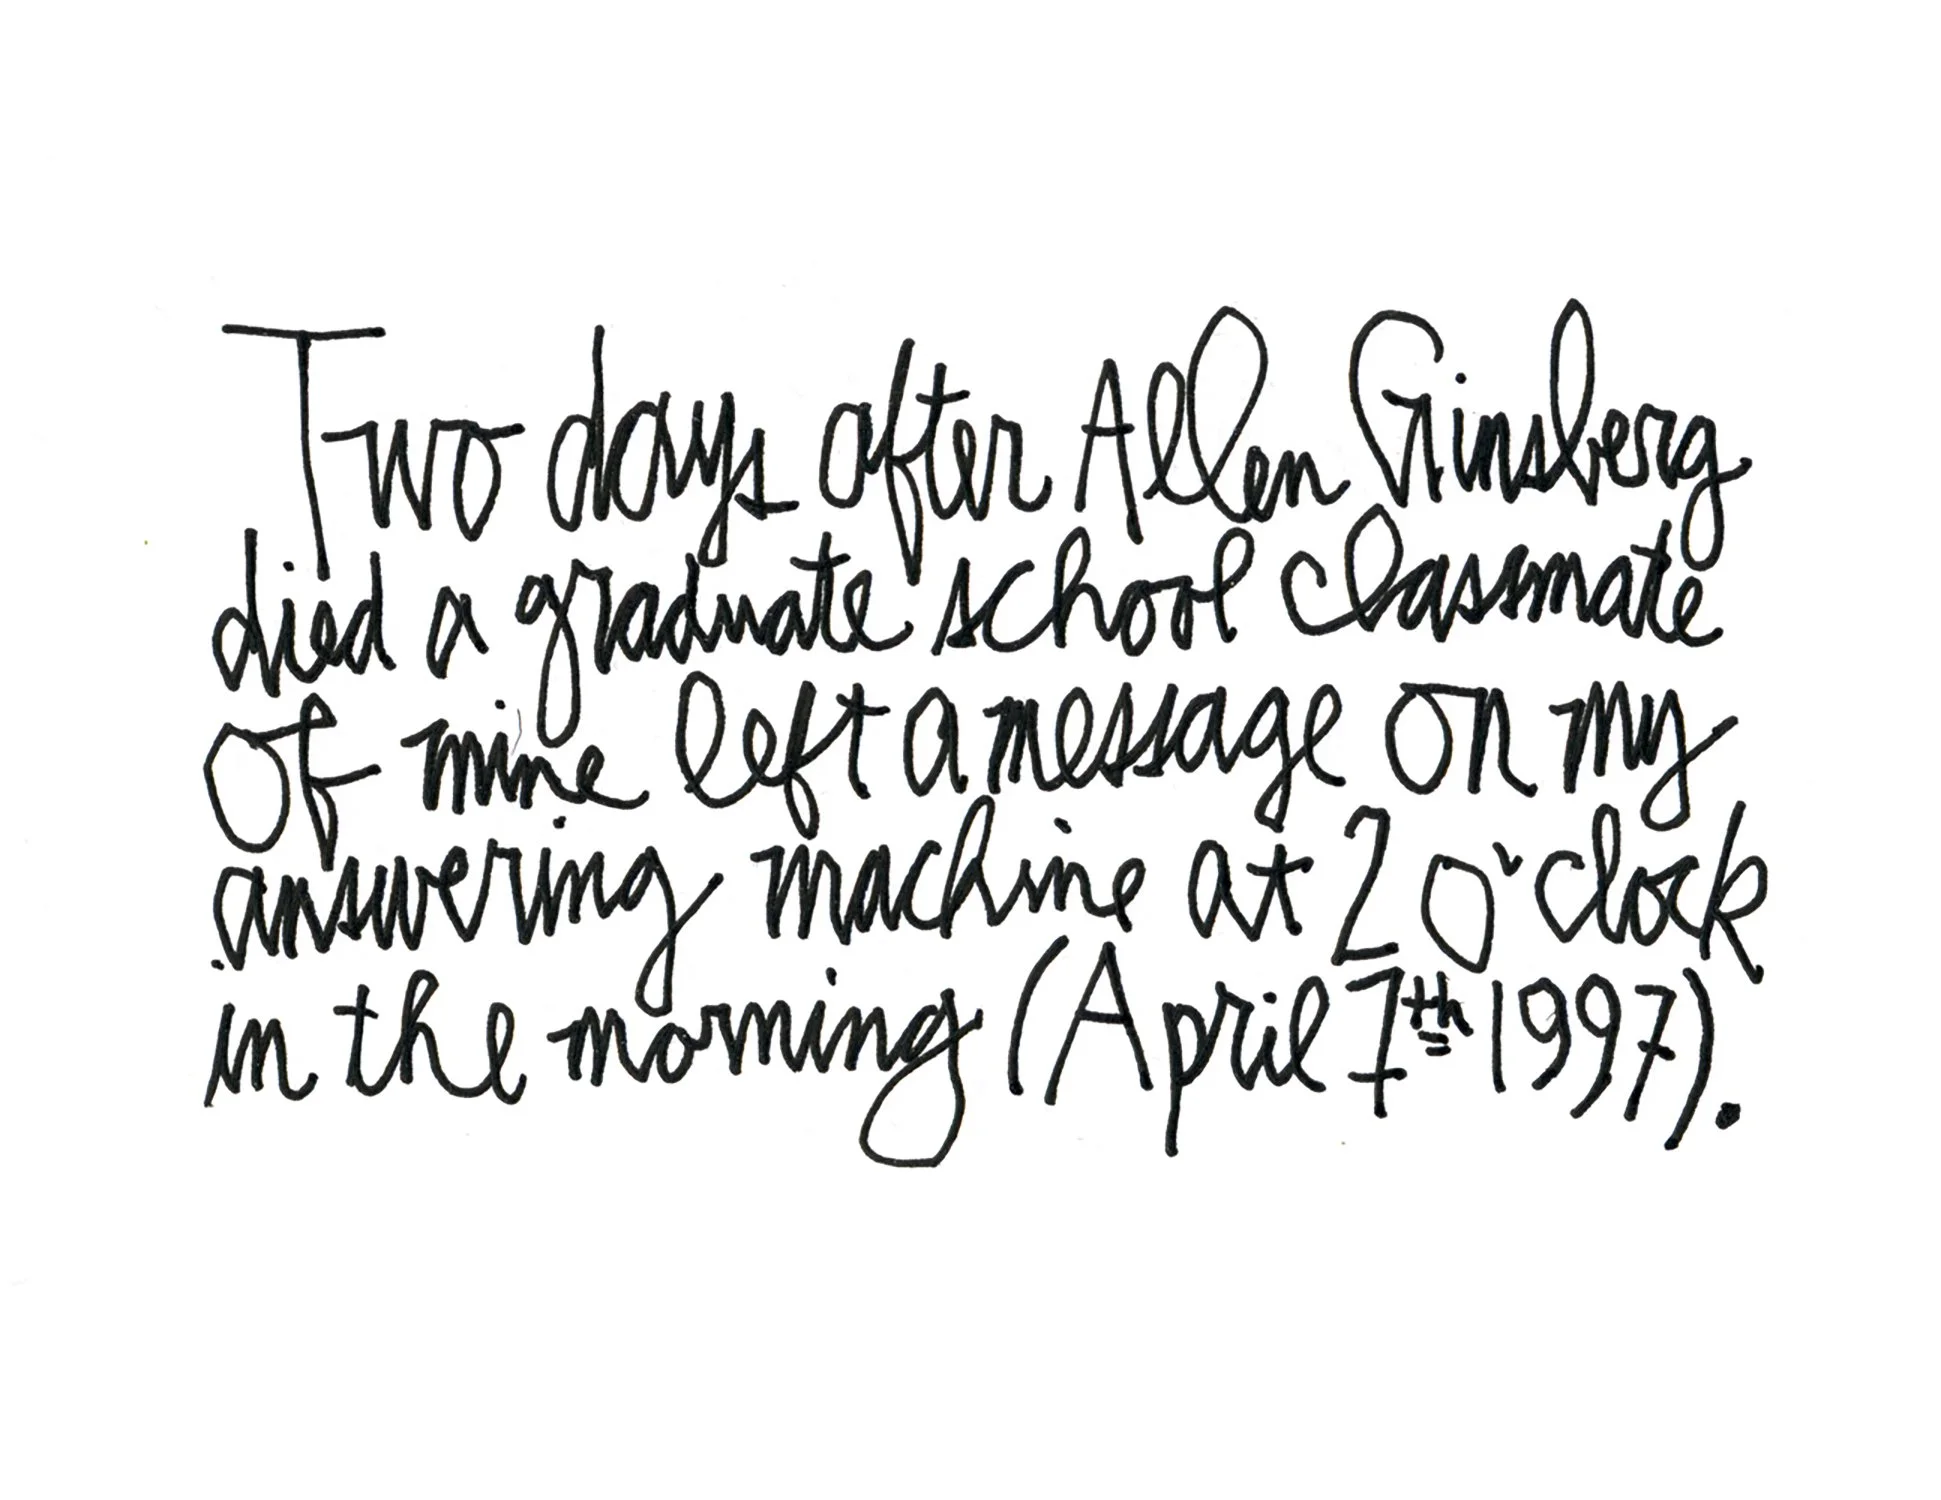 Two days after Allen Ginsberg
died a graduate school classmate
of mine left a message on my
answering machine at 2 o'clock
in the morning (April 7th 1997).